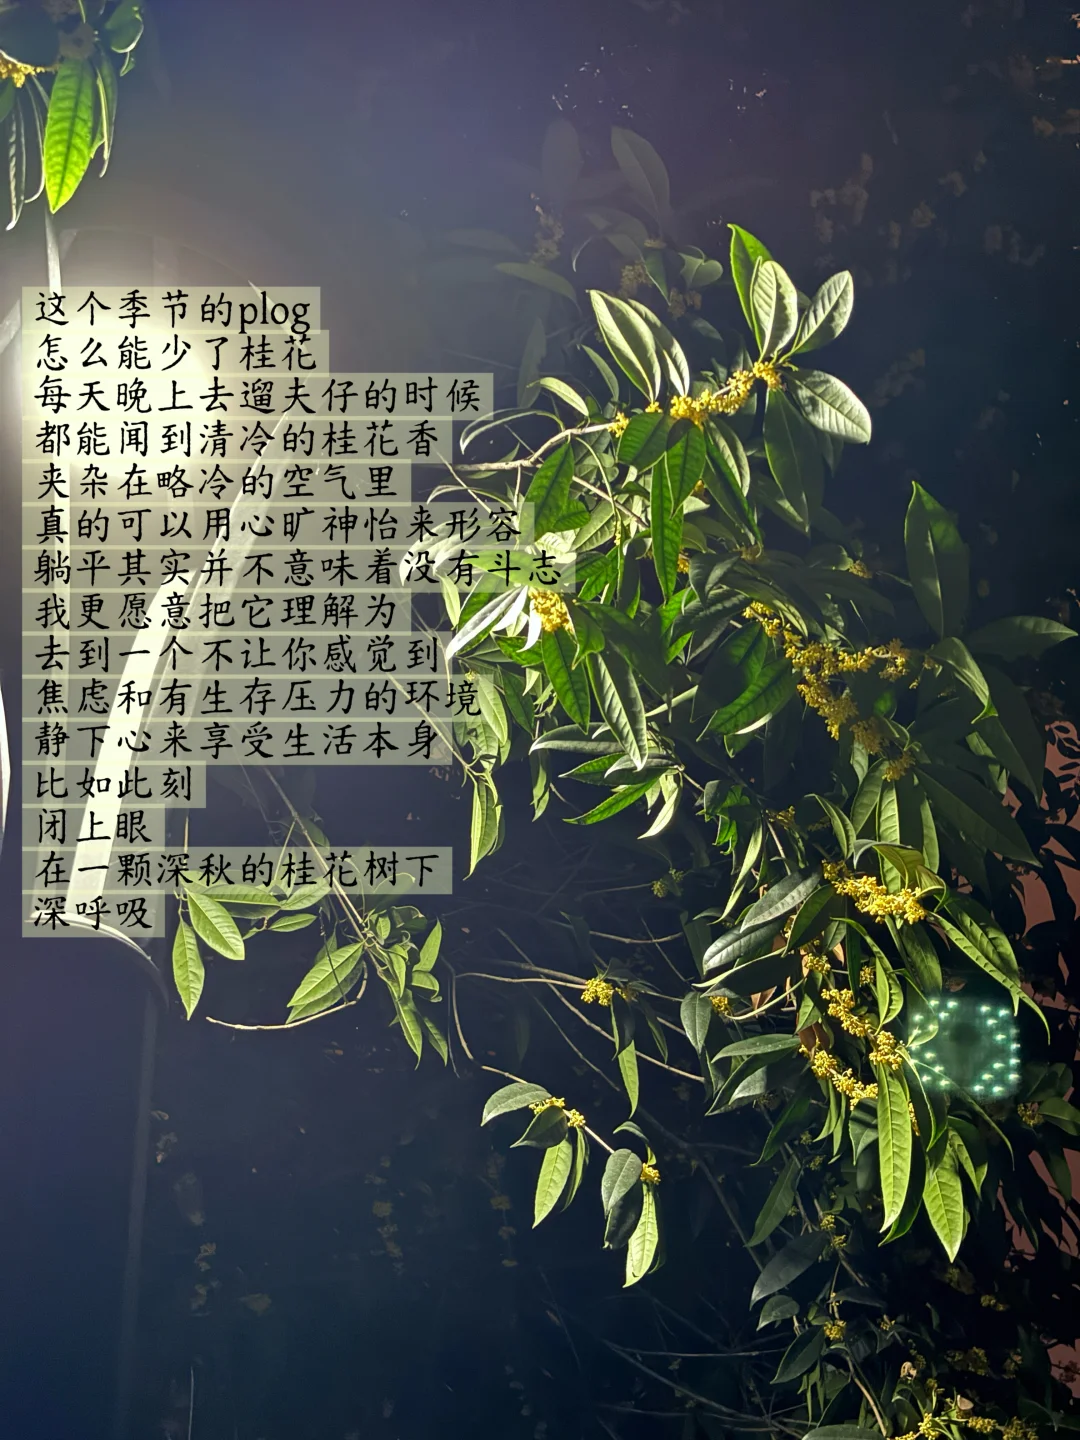 这个季节的plog
怎么能少了桂花
每天晚上去遛夫仔的时候
都能闻到清冷的桂花香
夹杂在略冷的空气里
真的可以用心旷神怡来形容
躺平其实并不意味着没有斗志
我更愿意把它理解为
去到一个不让你感觉到
焦虑和有生存压力的环境
静下心来享受生活本身
比如此刻
闭上眼
在一颗深秋的桂花树下
深呼吸